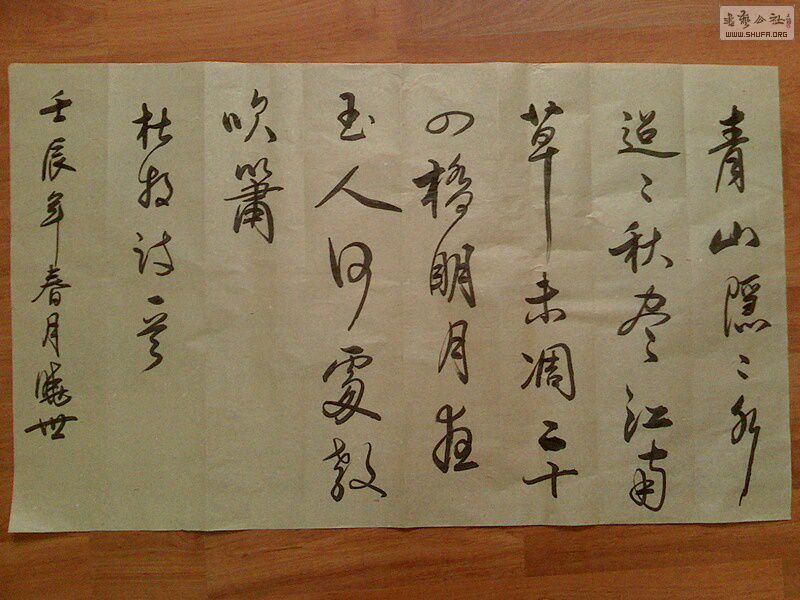 青山隐〻水
迢〻秋尽江南
草未凋二十
四橋明月夜
玉人何處教
吹簫
杜牧诗一首
壬辰年春月曉世
書藝公社
WWW.SHUFA.ORG